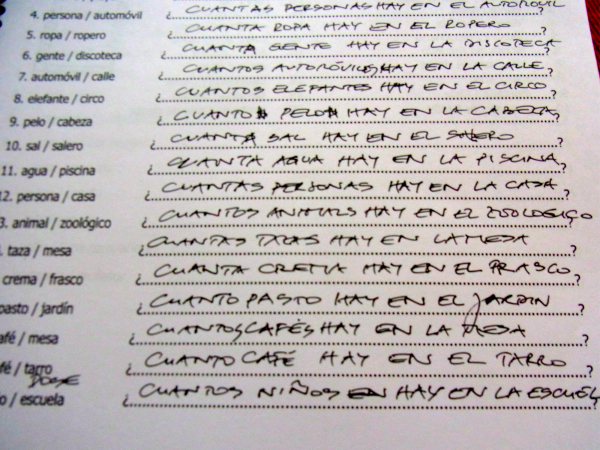 4. persona / automóvil ¿ CUANTAS PERSONAS HAY EN EL AUTOMOVIL
5. ropa / ropero ¿ CUANTA ROPA HAY EN EL ROPERO ?
6. gente / discoteca ¿ CUANTA GENTE HAY EN LA DISCOTECA ?
7. automóvil / calle ¿ CUANTOS AUTOMÓVILES HAY EN LA CALLE ?
8. elefante / circo ¿ CUANTOS ELEFANTES HAY EN EL CIRCO ?
9. pelo / cabeza ¿ CUANTO PELO HAY EN LA CABEZA ?
10. sal / salero ¿ CUANTA SAL HAY EN EL SALERO ?
11. agua / piscina ¿ CUANTA AGUA HAY EN LA PISCINA ?
12. persona / casa ¿ CUANTAS PERSONAS HAY EN LA CASA ?
3. animal / zoológico ¿ CUANTOS ANIMALS HAY EN EL ZOOLOGICO ?
. taza / mesa ¿ CUANTAS TAZAS HAY EN LA MESA ?
crema / frasco ¿ CUANTA CREMA HAY EN EL FRASCO ?
pasto / jardín ¿ CUANTO PASTO HAY EN EL JARDIN ?
afé / mesa ¿ CUANTOS CAFÉS HAY EN LA MESA ?
fé / tarro ¿ CUANTO CAFÉ HAY EN EL TARRO ?
o / escuela ¿ CUANTOS NIÑOS HAY EN LA ESCUEL